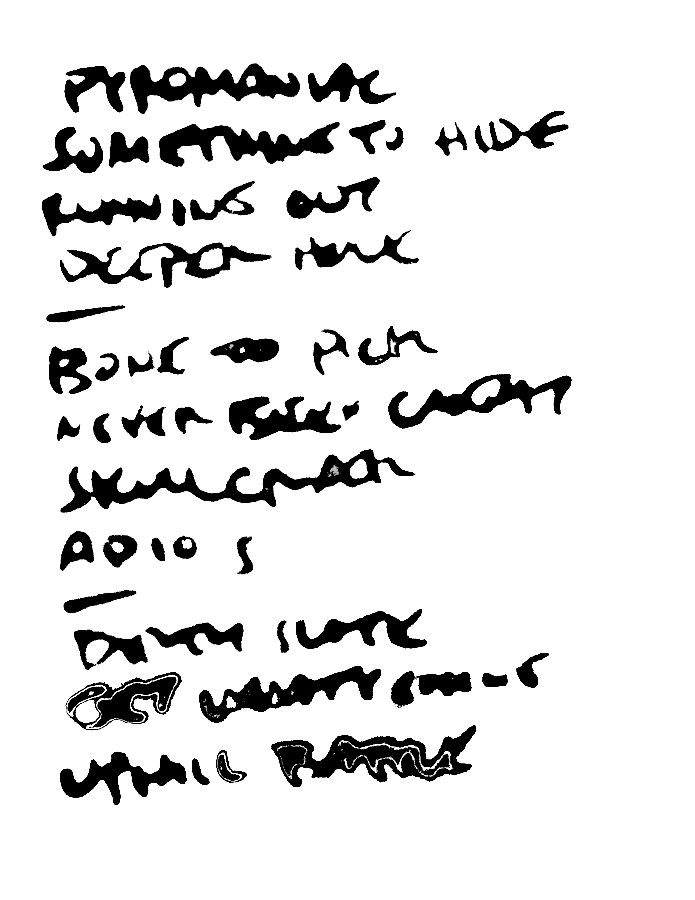 PYROMANIAC
SOMETHING TO HIDE
RUNNING OUT
DEEPER HOLE
BONE TO PICK
NEVER BEEN CAUGHT
SKULLCRACK
ADIOS
DEATH SLATE
GET WHATS COMING
UPHILL BATTLE